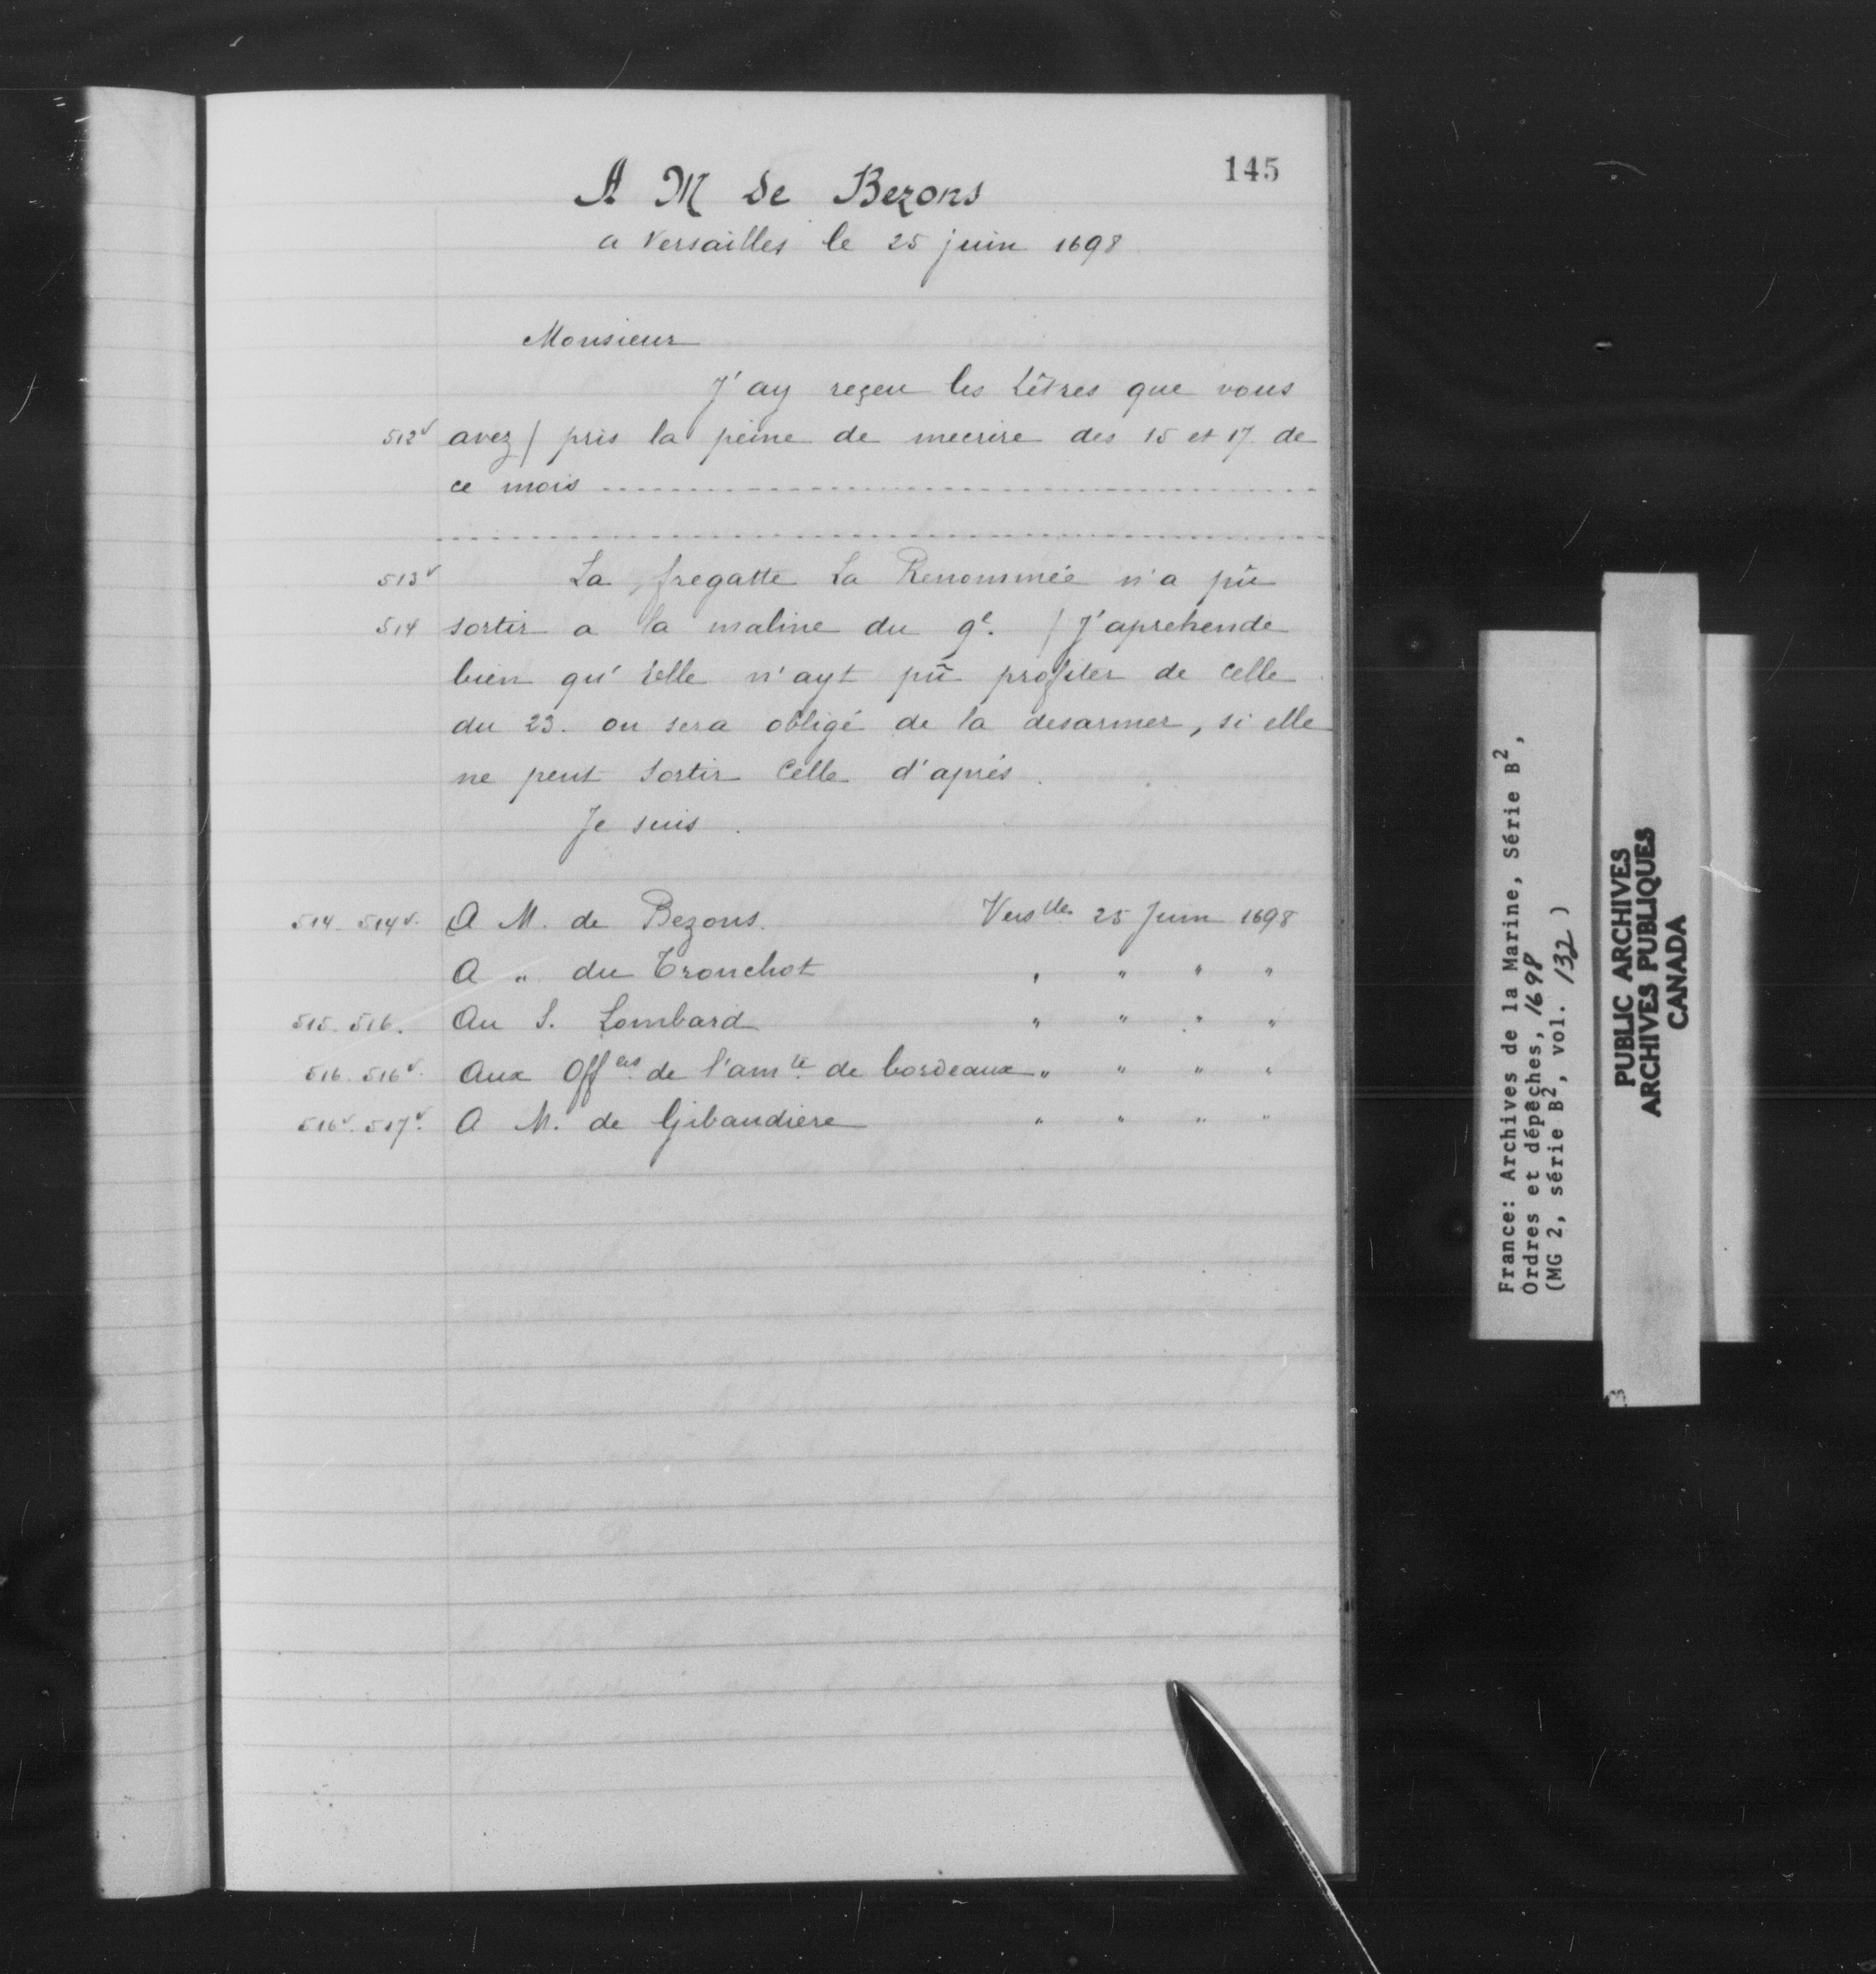 145
A M de Bezons
a Versailles le 25 juin 1698
Monsieur
J'ay reçeu les lêtres que vous
512v avez / pris la peine de mecrire des 15 et 17 de
ce mois ........................
........................
513v La fregatte La Renommée n'a pû
514 sortir a la maline du 9e. / J'aprehende
bien qu'elle n'ayt pû profiter de celle
du 23. on sera obligé de la desarmer, si elle
ne peut sortir celle d'aprés.
Je suis.
514. 514v. A M. de Bezons. Verslles 25 Juin 1698
A " du Tronchot " " " "
515. 516. Au S. Lombard " " " "
516. 516v. Aux Offers de l'amté de bordeaux " " " "
516v. 517v. A M. de Gibaudiere " " " "
France: Archives de la Marine, Série B2,
Ordres et dépêches, 1698
(MG 2, série B2, vol. 132)
PUBLIC ARCHIVES
ARCHIVES PUBLIQUES
CANADA
3